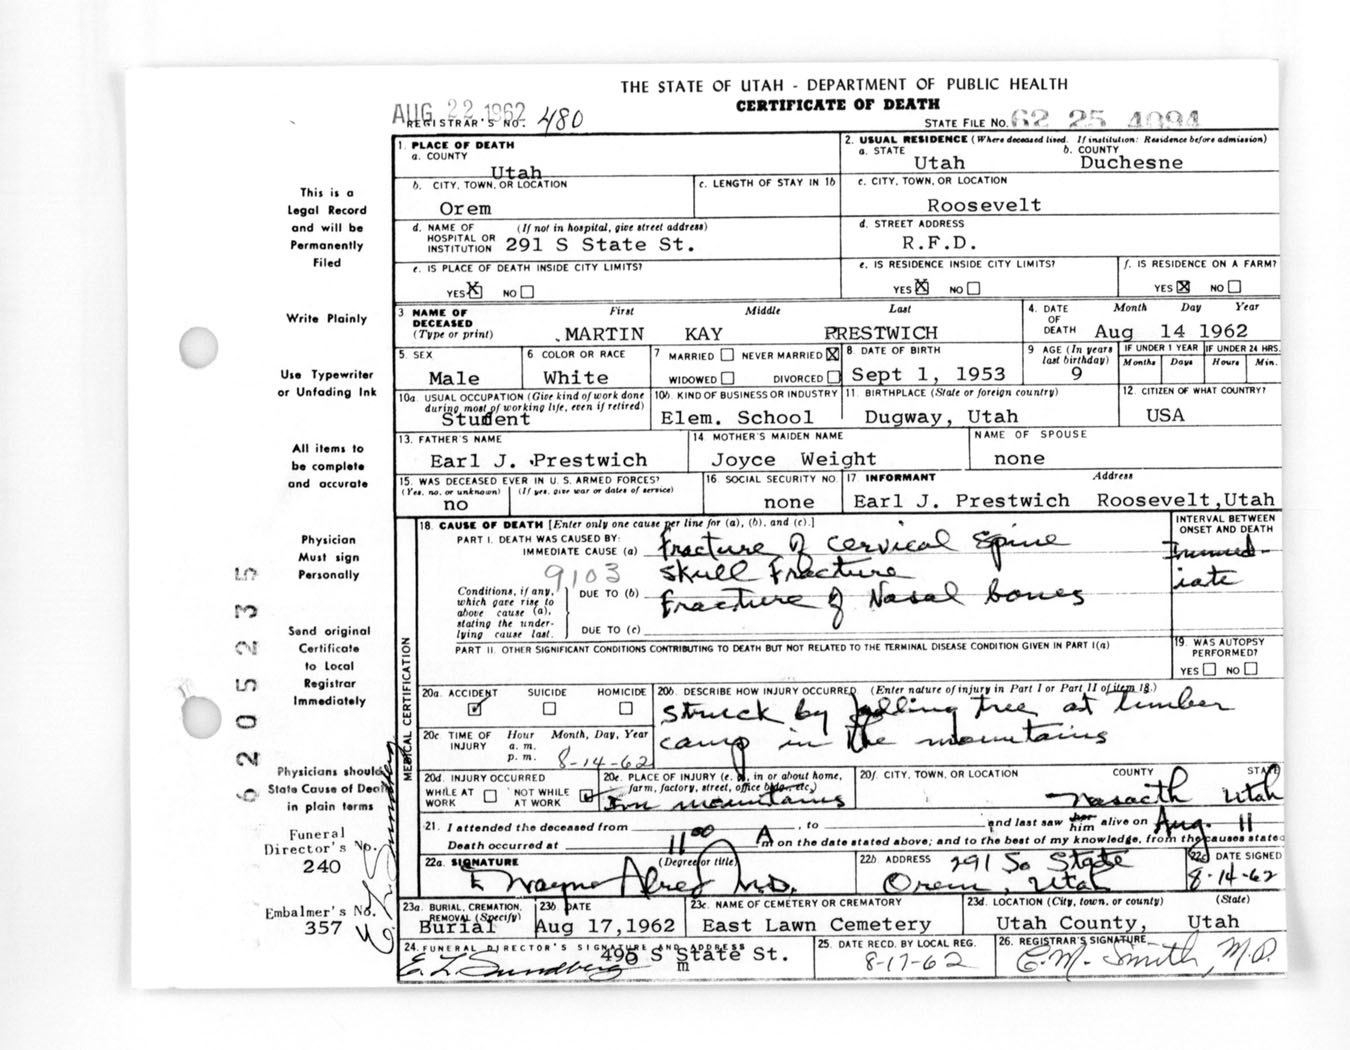 THE STATE OF UTAH - DEPARTMENT OF PUBLIC HEALTH
CERTIFICATE OF DEATH
AUG 22 1962
REGISTRAR'S NO. 480
STATE FILE NO. 62 25 4094
1. PLACE OF DEATH
a. COUNTY
Utah
2. USUAL RESIDENCE (Where deceased lived. If institution: Residence before admission)
a. STATE b. COUNTY
Utah Duchesne
b. CITY, TOWN, OR LOCATION
Orem
c. LENGTH OF STAY IN 1b
c. CITY, TOWN, OR LOCATION
Roosevelt
d. NAME OF HOSPITAL OR INSTITUTION (If not in hospital, give street address)
291 S State St.
d. STREET ADDRESS
R.F.D.
e. IS PLACE OF DEATH INSIDE CITY LIMITS?
YES X NO
e. IS RESIDENCE INSIDE CITY LIMITS?
YES X NO
f. IS RESIDENCE ON A FARM?
YES X NO
3 NAME OF DECEASED (Type or print)
First Middle Last
MARTIN KAY PRESTWICH
4. DATE OF DEATH
Month Day Year
Aug 14 1962
5. SEX
Male
6 COLOR OR RACE
White
7 MARRIED NEVER MARRIED X
WIDOWED DIVORCED
8 DATE OF BIRTH
Sept 1, 1953
9 AGE (In years last birthday)
9
IF UNDER 1 YEAR IF UNDER 24 HRS.
Months Days Hours Min.
10a. USUAL OCCUPATION (Give kind of work done during most of working life, even if retired)
Student
10b. KIND OF BUSINESS OR INDUSTRY
Elem. School
11. BIRTHPLACE (State or foreign country)
Dugway, Utah
12. CITIZEN OF WHAT COUNTRY?
USA
13. FATHER'S NAME
Earl J. Prestwich
14 MOTHER'S MAIDEN NAME
Joyce Weight
NAME OF SPOUSE
none
15. WAS DECEASED EVER IN U. S. ARMED FORCES?
(Yes, no, or unknown) (If yes, give war or dates of service)
no
16 SOCIAL SECURITY NO.
none
17 INFORMANT Address
Earl J. Prestwich Roosevelt, Utah
18. CAUSE OF DEATH [Enter only one cause per line for (a), (b), and (c).]
PART I. DEATH WAS CAUSED BY:
IMMEDIATE CAUSE (a) Fracture of cervical Spine
9103 Skull Fracture
Conditions, if any, which gave rise to above cause (a), stating the underlying cause last.
DUE TO (b) Fracture of Nasal bones
DUE TO (c)
INTERVAL BETWEEN ONSET AND DEATH
Immediate
PART II. OTHER SIGNIFICANT CONDITIONS CONTRIBUTING TO DEATH BUT NOT RELATED TO THE TERMINAL DISEASE CONDITION GIVEN IN PART I(a)
19. WAS AUTOPSY PERFORMED?
YES NO
20a. ACCIDENT SUICIDE HOMICIDE
20b. DESCRIBE HOW INJURY OCCURRED (Enter nature of injury in Part I or Part II of item 18.)
Struck by falling tree at timber
camp in the mountains
20c. TIME OF INJURY
Hour Month, Day, Year
a. m.
p. m. 8-14-62
20d. INJURY OCCURRED
WHILE AT WORK NOT WHILE AT WORK
20e. PLACE OF INJURY (e. g., in or about home, farm, factory, street, office bldg., etc.)
mountains
20f. CITY, TOWN, OR LOCATION COUNTY STATE
Utah
21. I attended the deceased from , to and last saw him alive on Aug. 11
Death occurred at 11 00 A m on the date stated above; and to the best of my knowledge, from the causes stated
22a. SIGNATURE (Degree or title)
Wayne M.D.
22b. ADDRESS
291 So State
Orem, Utah
22c. DATE SIGNED
8-14-62
23a. BURIAL, CREMATION, REMOVAL (Specify)
Burial
23b DATE
Aug 17, 1962
23c. NAME OF CEMETERY OR CREMATORY
East Lawn Cemetery
23d. LOCATION (City, town, or county) (State)
Utah County, Utah
24. FUNERAL DIRECTOR'S SIGNATURE AND ADDRESS
E. L. Sundberg 495 S State St.
25. DATE RECD. BY LOCAL REG.
8-17-62
26. REGISTRAR'S SIGNATURE
C. M. Smith, M.D.
MEDICAL CERTIFICATION
This is a
Legal Record
and will be
Permanently
Filed
Write Plainly
Use Typewriter
or Unfading Ink
All items to
be complete
and accurate
Physician
Must sign
Personally
Send original
Certificate
to Local
Registrar
Immediately
Physicians should
State Cause of Death
in plain terms
Funeral
Director's No.
240
Embalmer's No.
357
E. L. Sundberg
62052235